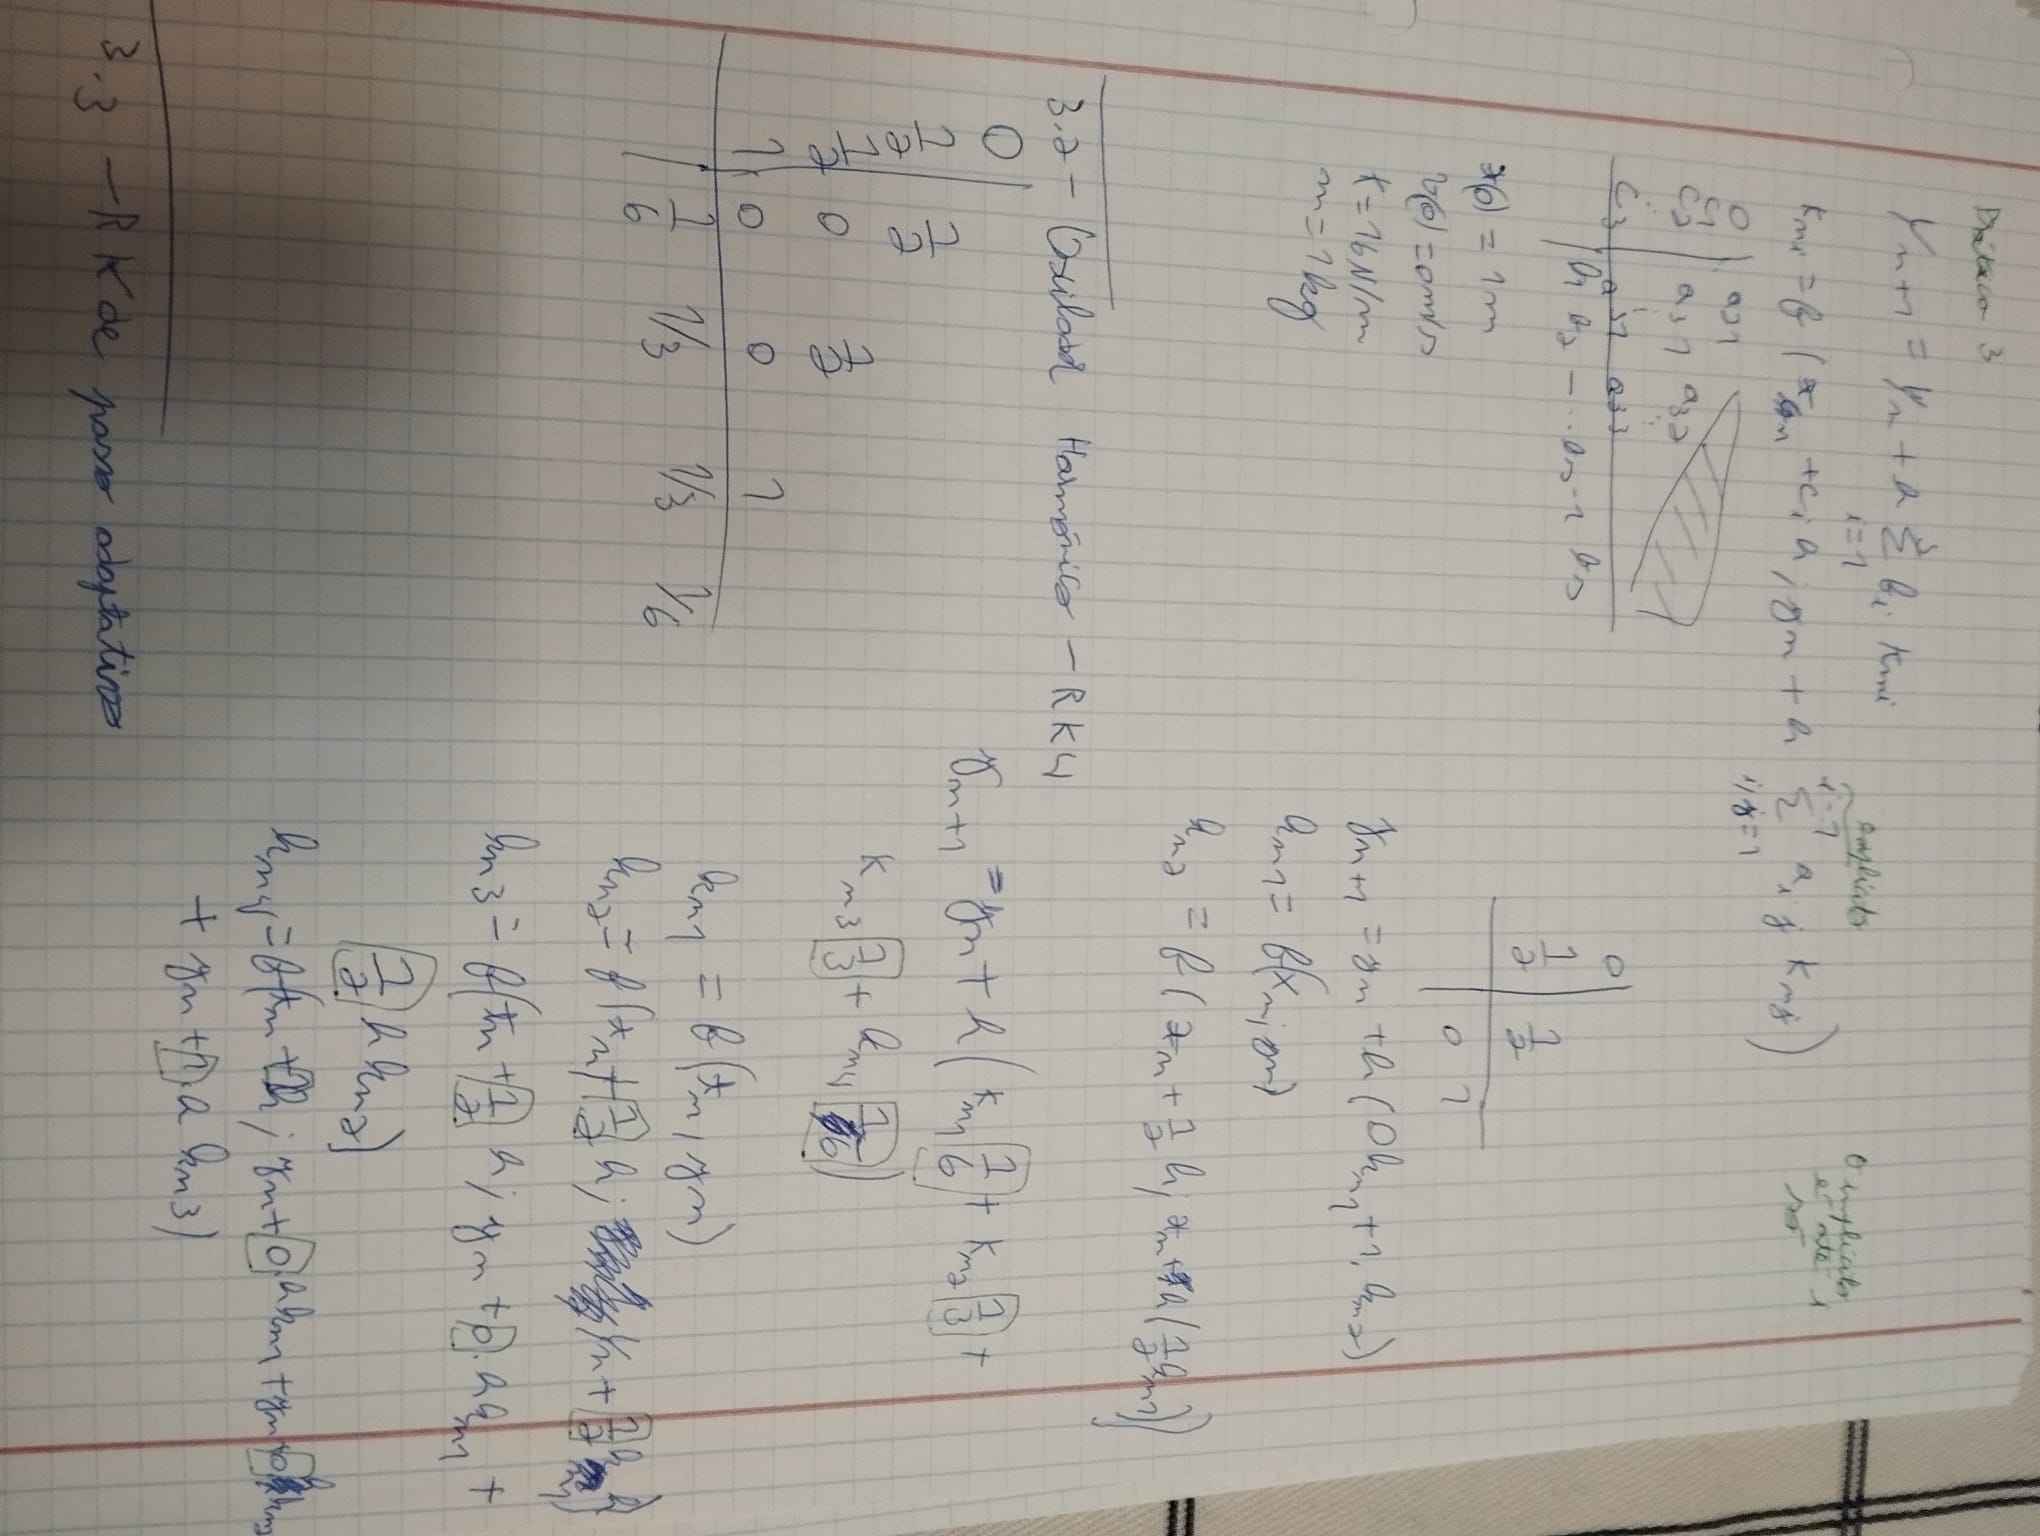 Prática 3
Y_{n+1} = Y_n + h \sum_{i=1}^{s} b_i K_{ni}
explicito
O implicito
é até s
só
K_{ni} = f ( t_n + c_i h ; y_n + h \sum_{i,j=1}^{i-1} a_{ij} K_{nj} )
0 | a21
c1
c2 | a31 a32
⋮ ⋮ ⋮
c3 | a51 a33
| b1 b2 - ... bs-1 bs
0 |
1/2 | 1/2
| 0 1
x(0) = 1m
v(0) = 0m/s
K = 16 N/m
m = 1kg
y_{n+1} = y_n + h ( 0 k_{n1} + 1. k_{n2} )
k_{n1} = f(x_n; y_n)
k_{n2} = f ( x_n + 1/2 h; x_n + h ( 1/2 k_{n1} ) )
3.2 - Oscilador Harmónico - RK4
0 |
1/2 | 1/2
1/2 | 0 1/2
1 | 0 0 1
| 1/6 1/3 1/3 1/6
y_{n+1} = y_n + h ( K_{n1} 1/6 + K_{n2} 1/3 +
K_{n3} 1/3 + k_{n4} 1/6 )
k_{n1} = f ( t_n, y_n )
k_{n2} = f ( t_n + 1/2 h; Y_n + 1/2 h k_{n1} )
k_{n3} = f ( t_n + 1/2 h; y_n + 0. h k_{n1} +
1/2 h k_{n2} )
k_{n4} = f ( t_n + 1h ; y_n + 0. h k_{n1} + y_n + 0. h k_{n2}
+ y_n + 1. h k_{n3} )
3.3 - RK de passo adaptativo